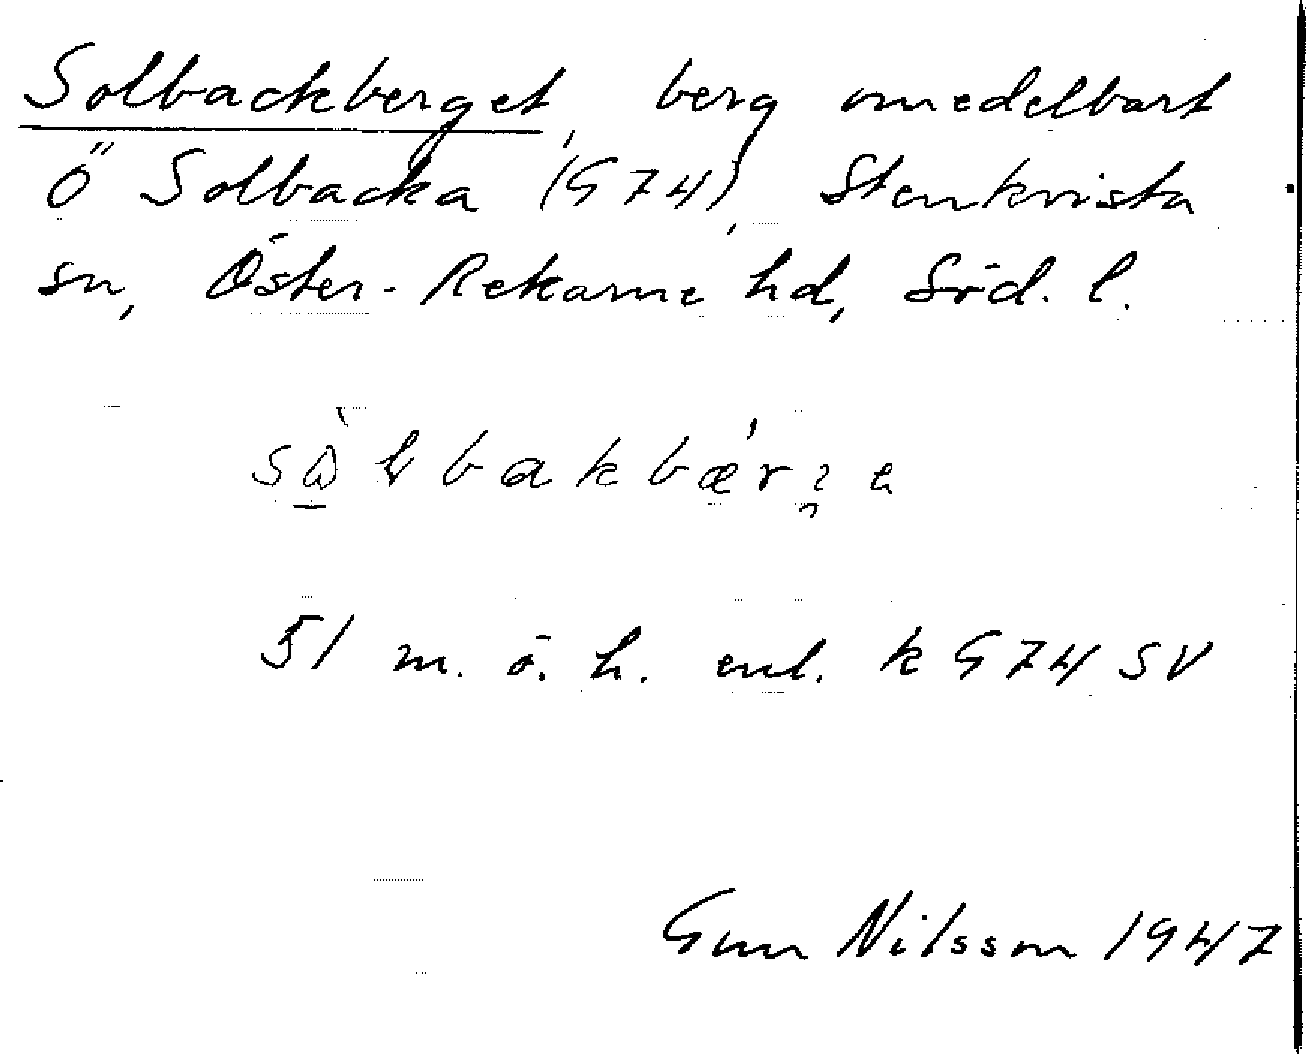 Solbackberget, berg omedelbart
Ö Solbacka (G74), Stenkvista
sn, Öster-Rekarne hd, Söd. l.
51 m. ö. h. enl. k G74 SV
Gun Nilsson 1947